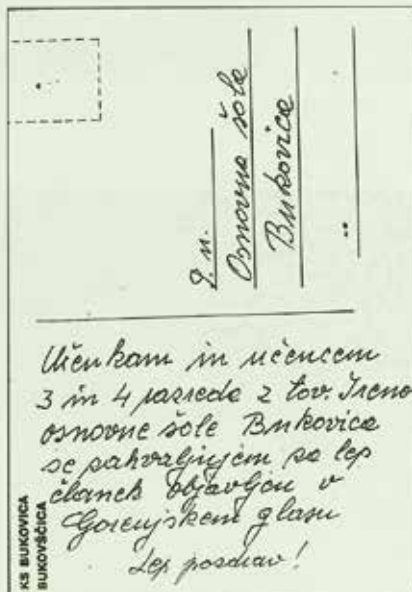 C. n.
Osnovna šola
Bukovica
Učenkam in učencem
3 in 4 razreda z tov. Ireno
osnovne šole Bukovica
se zahvaljujem za lep
članek objavljen v
Gorenjskem glasu
Lep pozdrav!
KS BUKOVICA
BUKOVŠČICA